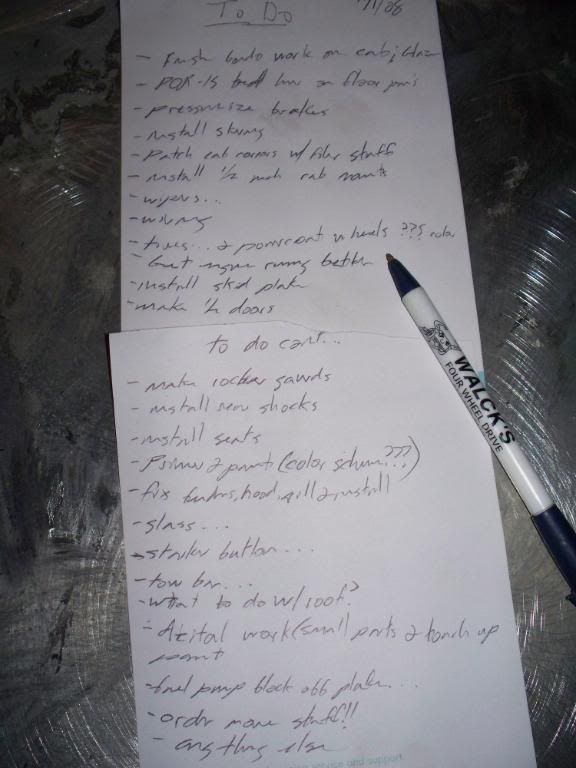 To Do
- Finish bondo work on cab,
- POR-15 bed liner on floor pans
- pressurize brakes
- install
- Patch cab corners w/ fiber stuff
- install 1/2 inch cab mounts
- wipers...
- wiring
- tires... & paint wheels ??? color
- Get engine running better
- install skid plate
- make 1/2 doors
to do cont...
- make rocker guards
- install new shocks
- install seats
- Primer & paint (color scheme???)
- fix fenders, hood, grill & install
- glass...
- starter button...
- tow bar...
- what to do w/ roof?
- detail work (small parts & touch up
paint
- fuel pump block off plate...
- order more stuff!!
- anything else
WALCK'S
FOUR WHEEL DRIVE
service and support